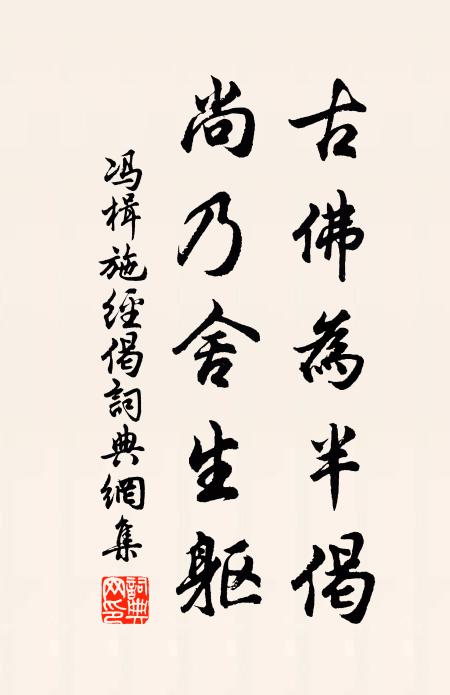 古佛為半偈
尚乃舍生軀
冯楫施經偈詞典網集
詞典网印